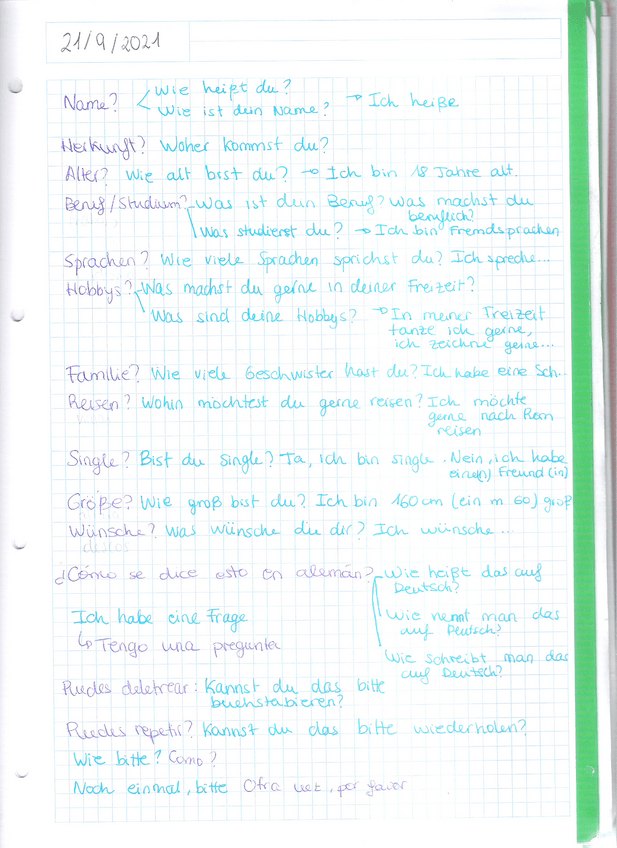 21/9/2021
Wie heißt du?
Name? Wie ist dein Name? → Ich heiße
Herkunft? Woher kommst du?
Alter? Wie alt bist du? → Ich bin 18 Jahre alt.
Beruf/Studium? Was ist dein Beruf? Was machst du
beruflich?
Was studierst du? → Ich bin Fremdsprachen
Sprachen? Wie viele Sprachen sprichst du? Ich spreche...
Hobbys? Was machst du gerne in deiner Freizeit?
Was sind deine Hobbys? → In meiner Freizeit
tanze ich gerne,
ich zeichne gerne...
Familie? Wie viele Geschwister hast du? Ich habe eine Sch...
Reisen? Wohin möchtest du gerne reisen? Ich möchte
gerne nach Rom
reisen
Single? Bist du single? Ja, ich bin single. Nein, ich habe
eine(n) Freund(in)
Größe? Wie groß bist du? Ich bin 160 cm (ein m 60) groß
Wünsche? Was wünsche du dir? Ich wünsche...
¿Cómo se dice esto en alemán? Wie heißt das auf
Deutsch?
Ich habe eine Frage
Wie nennt man das
auf Deutsch?
↳ Tengo una pregunta
Wie schreibt man das
auf Deutsch?
Puedes deletrear: Kannst du das bitte
buchstabieren?
Puedes repetir? Kannst du das bitte wiederholen?
Wie bitte? Como?
Noch einmal, bitte Otra vez, por favor